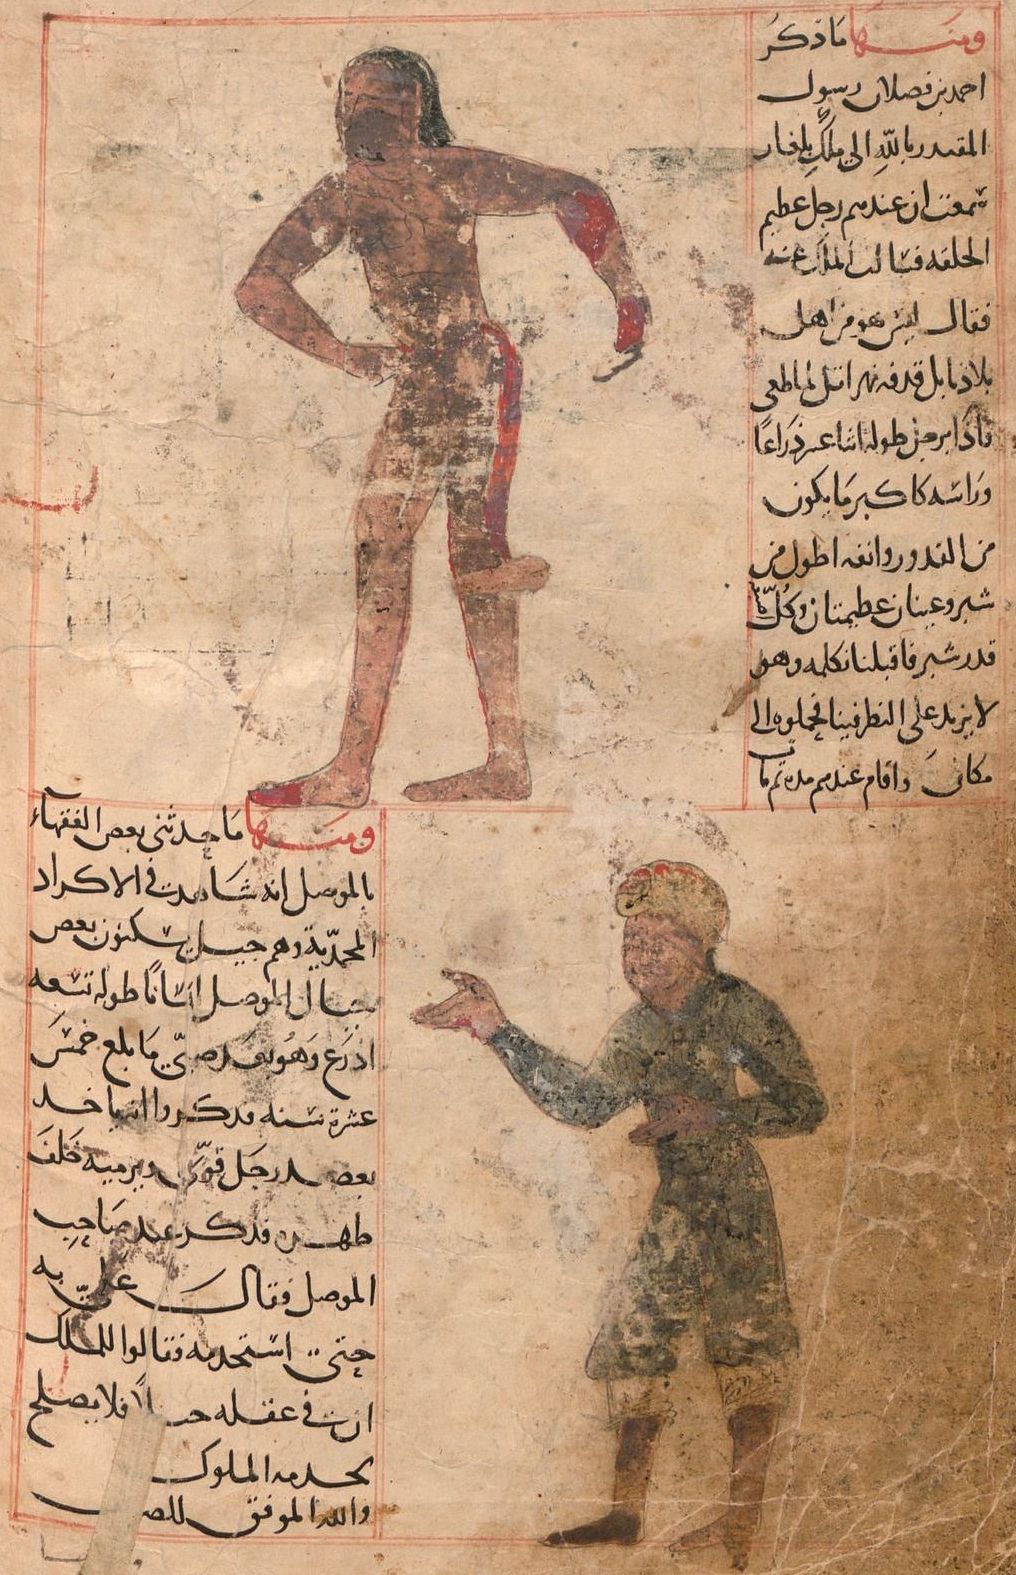 ومنها ما ذكر
احمد بن فضلان رسول
المقتدر بالله الى ملك بلغار
سمعت ان عندهم رجل عظيم
الخلقه فسالت الملك عنه
فقال ليس هو من اهل
بلادنا بل قدفه نهر اتل
فاذا برجل طوله اثنا عشر ذراعًا
وراسه كاكبر ما يكون
من القدور وانفه اطول من
شبر وعينان عظيمتان وكل
قدر شبر فاقبلنا نكلمه وهو
لا يزيد على النظر فينا فحملوه الى
مكاني واقام عندهم مدة ثم مات
ومنها ما حدثني بعض الفقهاء
بالموصل انه شاهد في الاكراد
المحمدية وهم جيل يسكنون بعض
جبال الموصل انسانًا طوله تسعه
اذرع وهو بعد صبي ما بلغ خمس
عشرة سنه فذكروا انه ياخذ
بعضد رجل قوي ويرميه خلف
ظهره فذكر عند صاحب
الموصل فقال علي به
حتى استخدمه فقالوا للملك
ان في عقله خبالًا فلا يصلح
لخدمه الملوك
والله الموفق للصواب